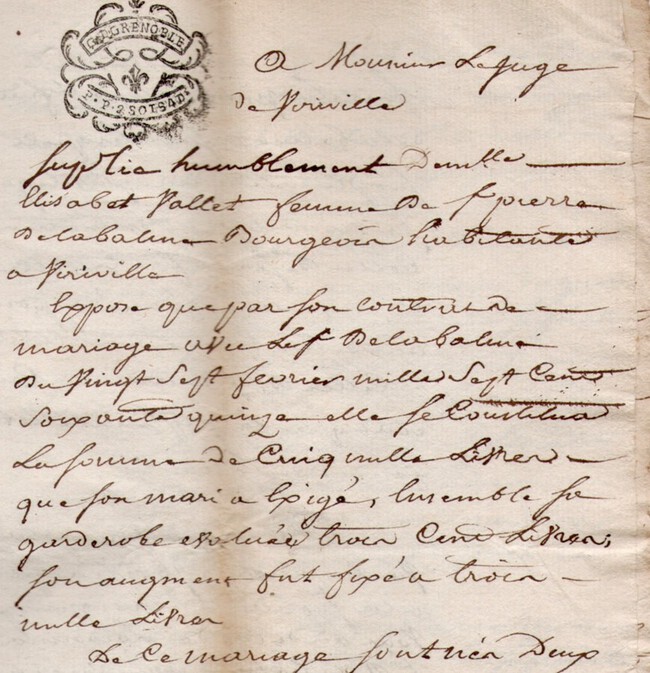 G. D GRENOBLE
P. P. 2 SOLS 4 D.
A Monsieur Le juge
de Viriville
suplie humblement Demlle
Elisabet Vallet femme De sr pierre
Delabalme Bourgeois habitante
a Viriville
Expose que par son contrat de
mariage avec Le sr Delabalme
du Vingt Sept fevrier mille Sept Cent
soixante quinze elle se Constitua
La somme de Cinq mille Livres
que son mari a Exigé, Ensemble sa
garderobe evaluée trois Cent Livres,
son augment fut fixé a trois
mille Livres
De Ce mariage sont nés Deux